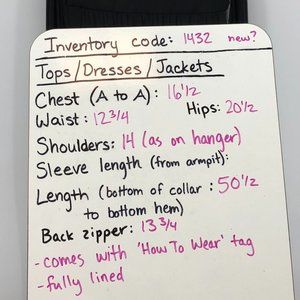 Inventory code: 1432 new?
Tops/Dresses/Jackets
Chest (A to A): 16 1/2
Waist: 12 3/4 Hips: 20 1/2
Shoulders: 14 (as on hanger)
Sleeve length (from armpit):
Length (bottom of collar : 50 1/2
to bottom hem)
Back zipper: 13 3/4
-comes with 'How To Wear' tag
-fully lined